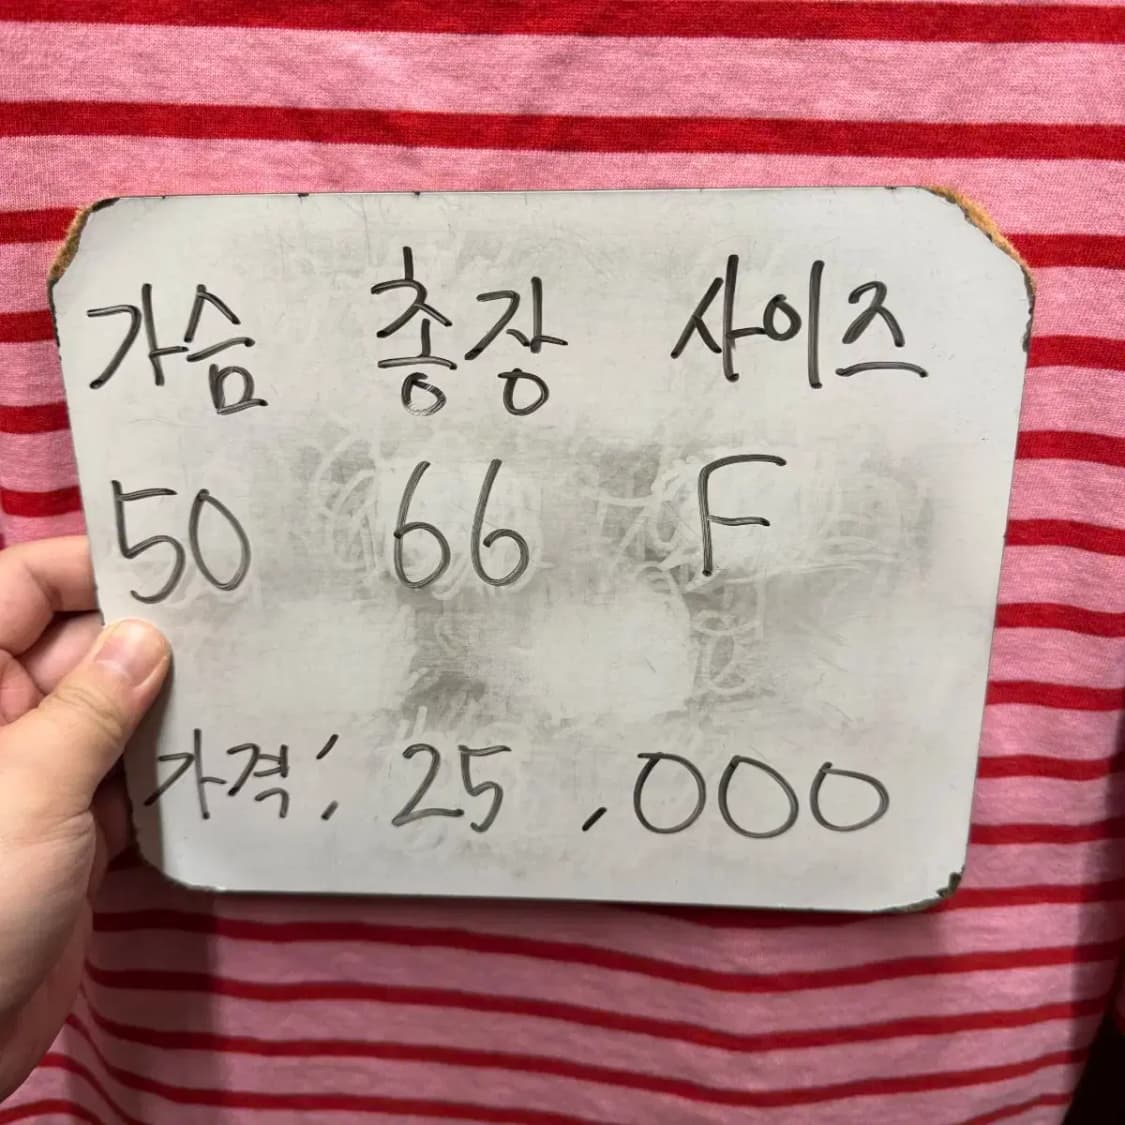 가슴 총장 사이즈
50 66 F
가격: 25,000